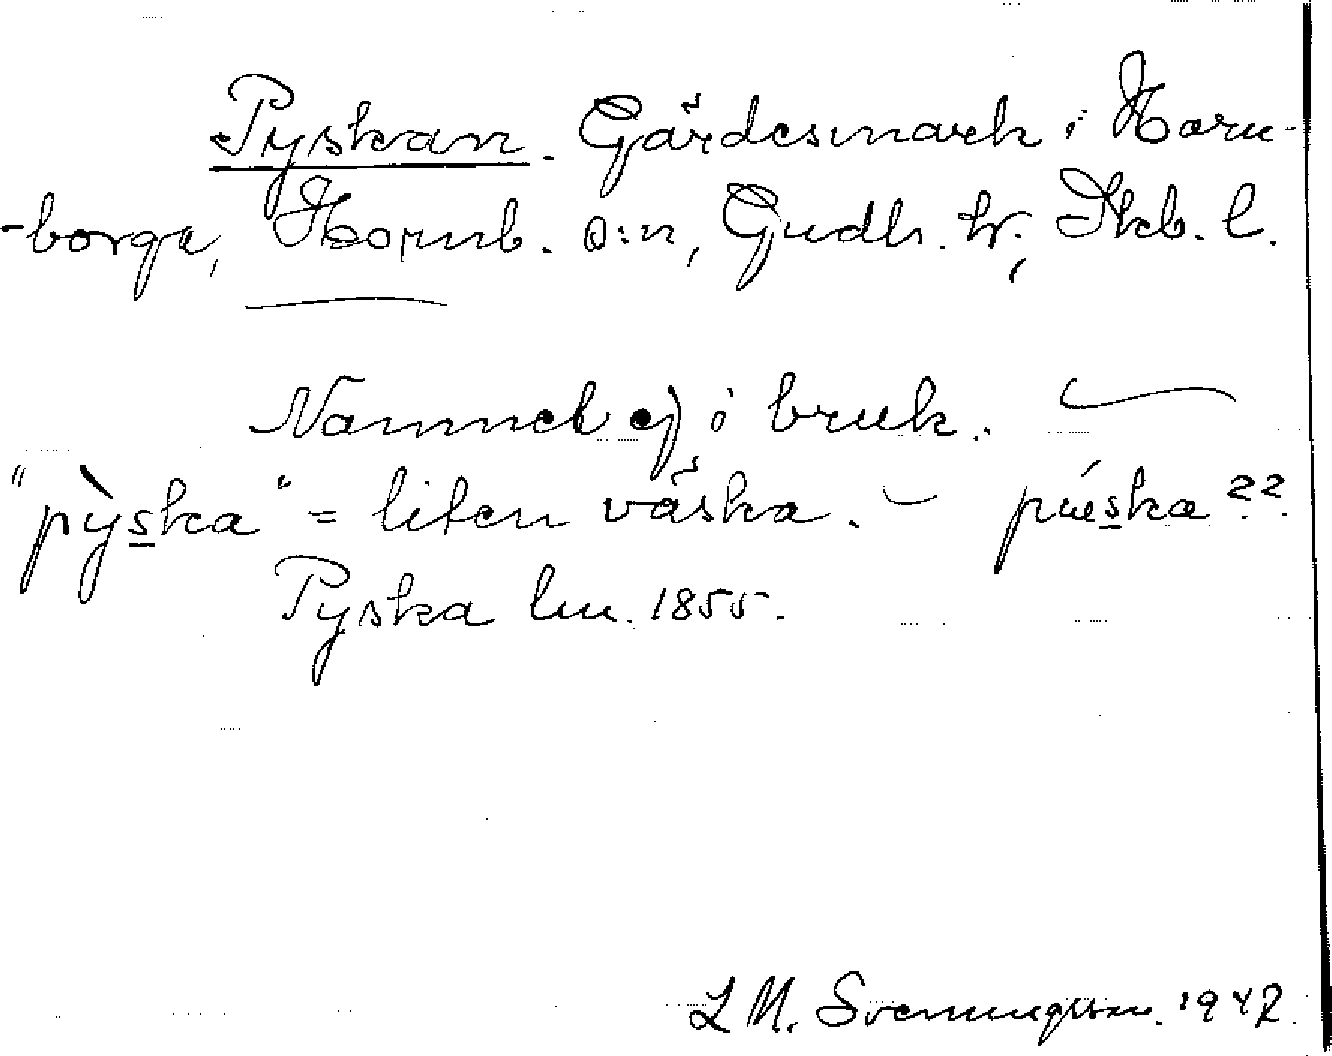 Pyskan. Gärdesmark i Horn-
-borga, Hornb. s:n, Gudh. hr., Skb. l.
Namnet ej i bruk. —
"pỳska" = liten väska. – púeska ??
Pyska lm. 1855.
L M. Svenungsson. 1942